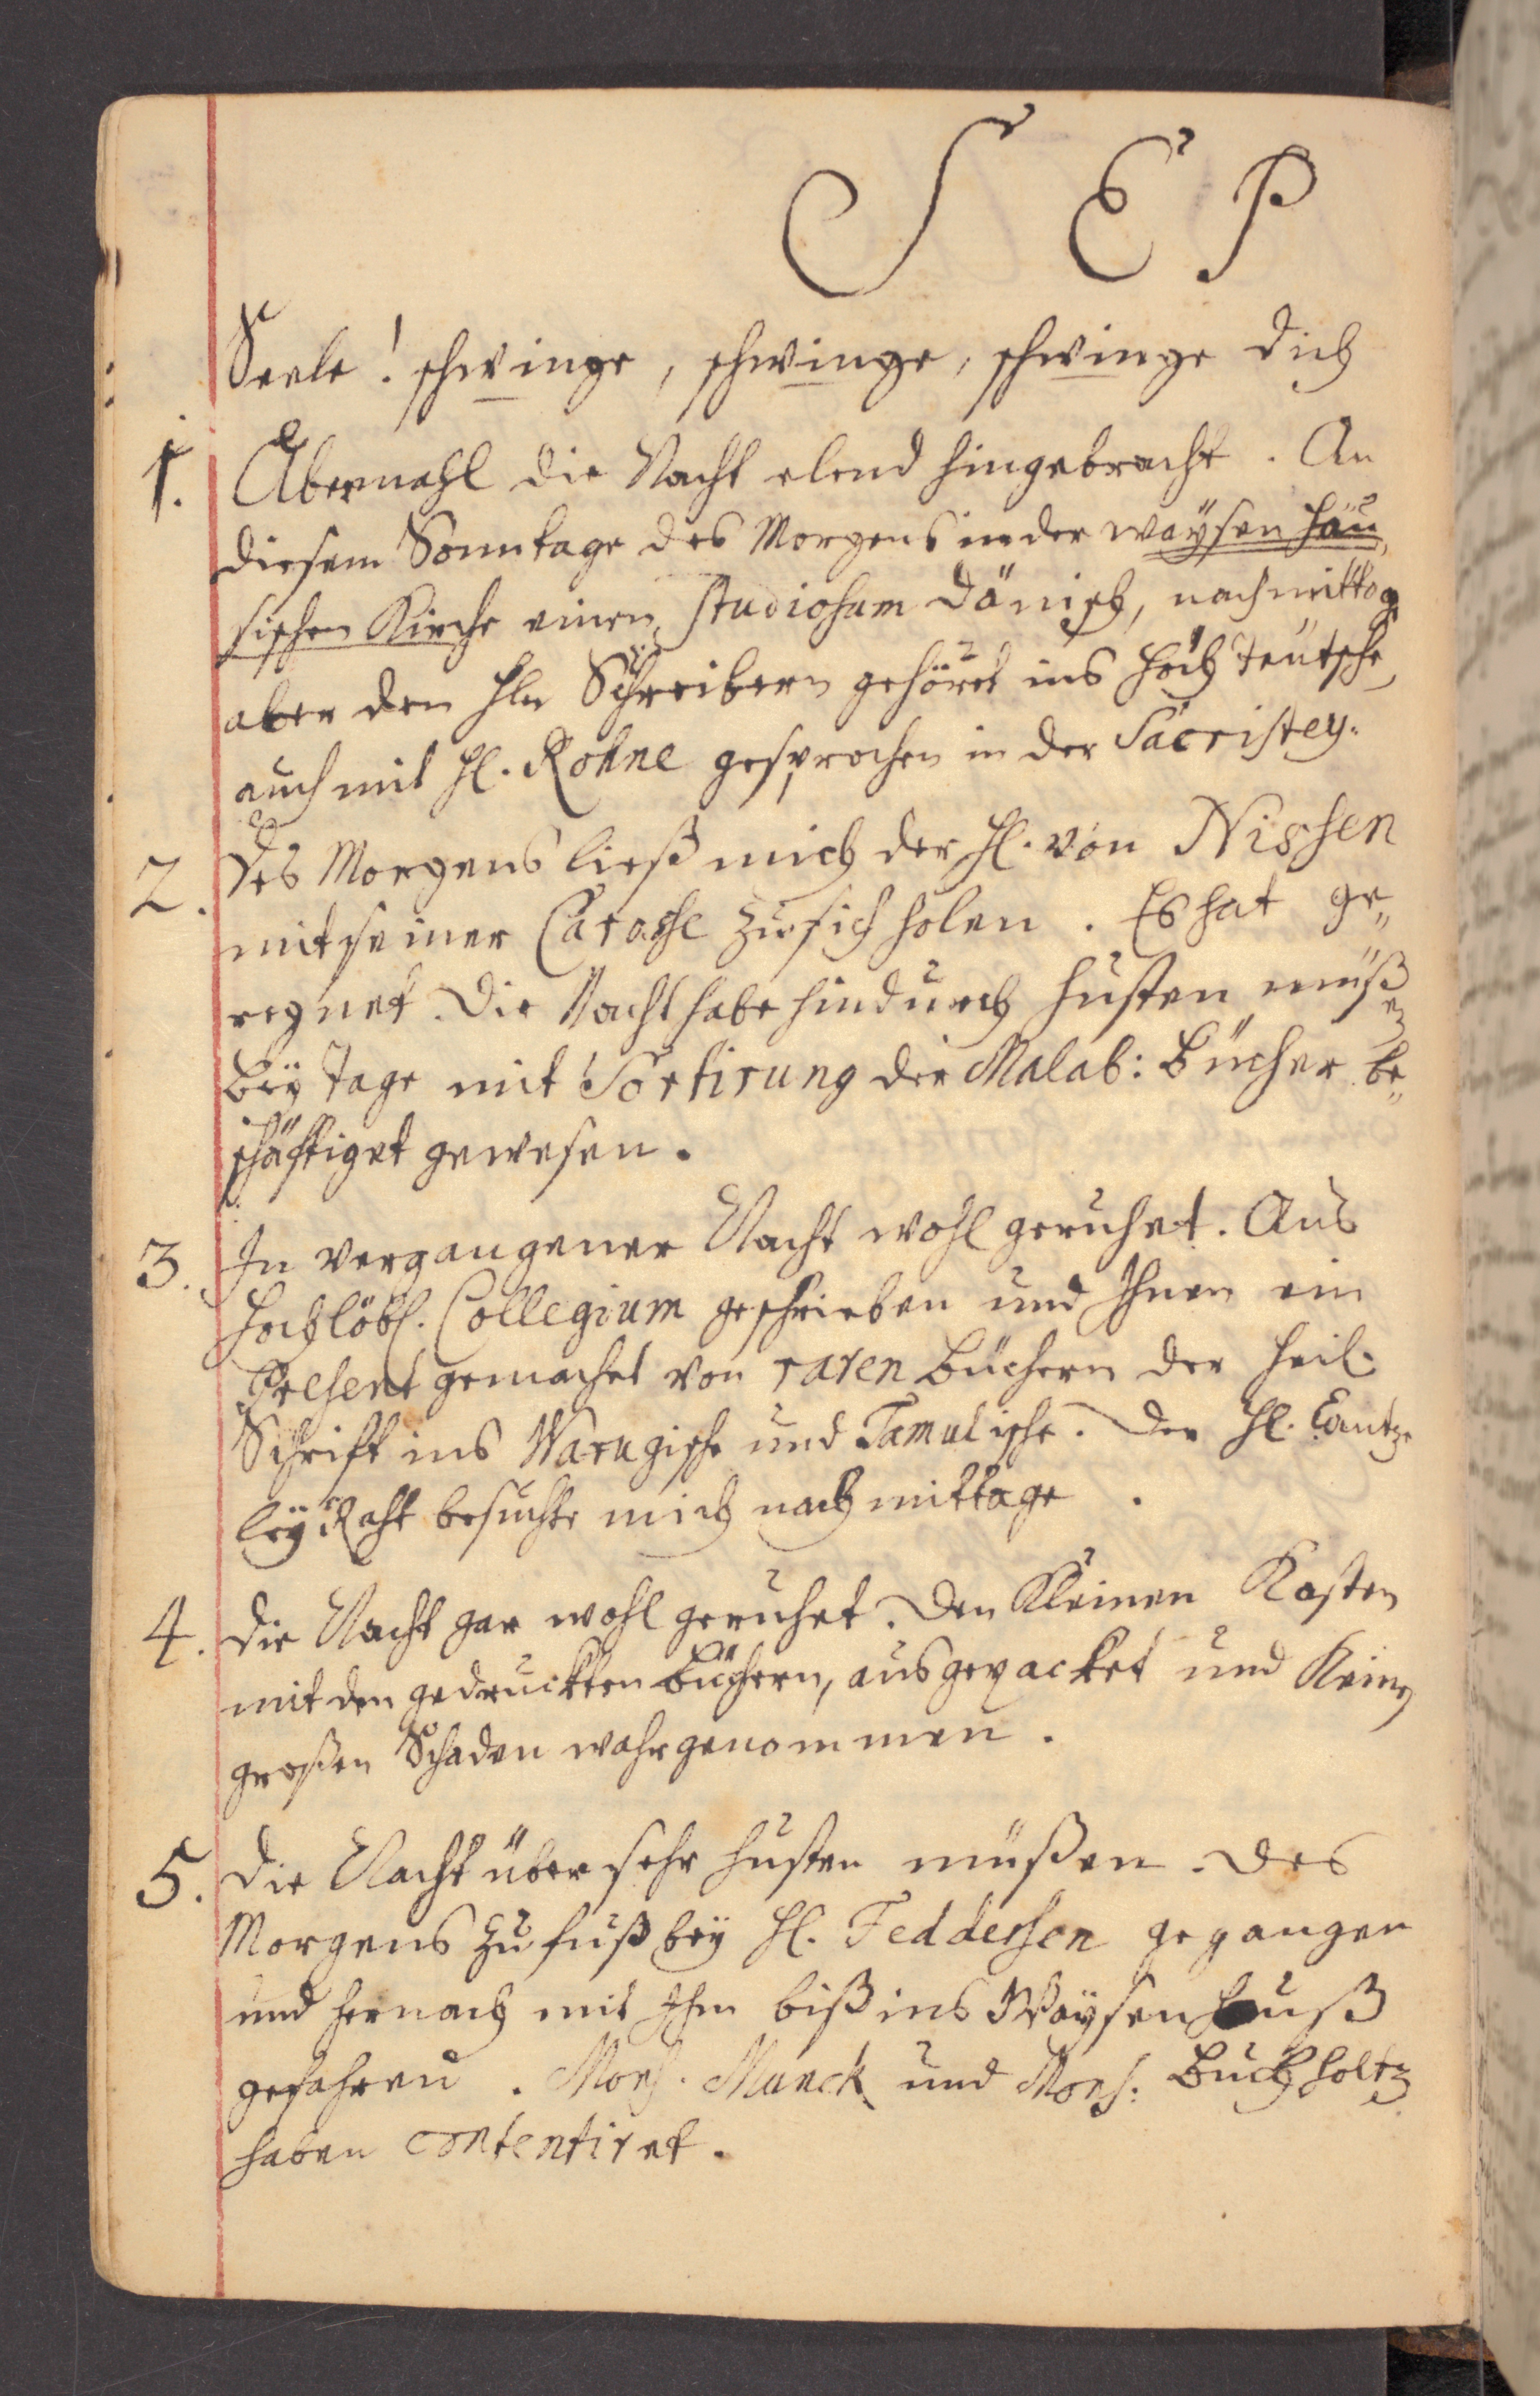 S E P
Seele! schwinge, schwinge, schwinge dich
1. Abermahl die Nacht elend hingebracht. An
diesem Sonntage des Morgens in der Waÿsen häu,
sischen Kirche einen studiosum Dänisch, nachmittag
aber den Hln Schreibern gehöret ins Hoch teutsche,
auch mit Hl. Rohne gesprochen in der Sacristey.
2. Des Morgens ließ mich der Hl. von Nissen
mit seiner Carosse zu sich holen. Es hat ge„
regnet. Die Nacht habe hindurch husten müß
en
beÿ tage mit Sortirung der Malab: Bücher be„
schäftiget gewesen.
3. In vergangener Nacht wohl geruhet. Ans
Hochlöbl. Collegium geschrieben und Ihnen ein
Present gemachet von raren Büchern der Heil.
Schrift ins Warugische und Tamulische. Der Hl. Cantze
leÿ Raht besuchte mich nach mittage.
4. Die Nacht gar wohl geruhet. Den Kleinen Kasten
mit den gedruckten Büchern, ausgepacket und Keinen
großen Schaden wahrgenommen.
5. Die Nacht über sehr husten müßen. Des
Morgens zu fuß beÿ Hl. Feddersen gegangen
und hernach mit Ihm biß ins Waÿsenhauß
gefahren. Mons. Munck und Mons: Buchholtz
haben contentiret.